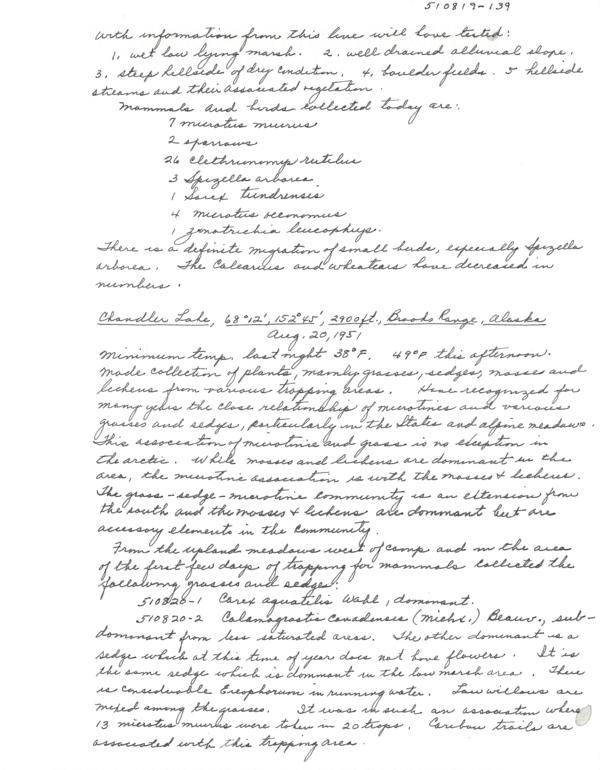 510819-139
with information from this line will have tested:
1. wet low lying marsh. 2. well drained alluvial slope.
3. steep hillside of dry condition. 4. boulder fields. 5 hillside
streams and their associated vegetation.
Mammals and birds collected today are:
7 microtus miurus
2 sparrows
26 clethrionomys rutilus
3 Spizella arborea
1 Sorex tundrensis
4 microtus oeconomus
1 zonotrichia leucophrys.
There is a definite migration of small birds, especially Spizella
arborea. The Calcarius and wheatears have decreased in
numbers.
Chandler Lake, 68°12', 152°45', 2900ft., Brooks Range, Alaska
Aug. 20, 1951
Minimum temp. last night 38°F. 49°F this afternoon.
Made collection of plants, mainly grasses, sedges, mosses and
lichens from various trapping areas. Have recognized for
many years the close relationship of microtines and various
grasses and sedges, particularly in the States and alpine meadows.
This association of microtine and grass is no exception in
the arctic. While mosses and lichens are dominant in the
area, the microtine association is with the mosses & lichens.
The grass-sedge-microtine community is an extension from
the south and the mosses & lichens are dominant but are
accessory elements in the community.
From the upland meadows west of camp and in the area
of the first few days of trapping for mammals collected the
following grasses and sedges:
510820-1 Carex aquatilis Wahl, dominant.
510820-2 Calamagrostis canadensis (Michx.) Beauv., sub-
dominant from less saturated areas. The other dominant is a
sedge which at this time of year does not have flowers. It is
the same sedge which is dominant in the low marsh area. There
is considerable Eriophorum in running water. Low willows are
mixed among the grasses. It was in such an association where
13 microtus miurus were taken in 20 traps. Caribou trails are
associated with this trapping area.